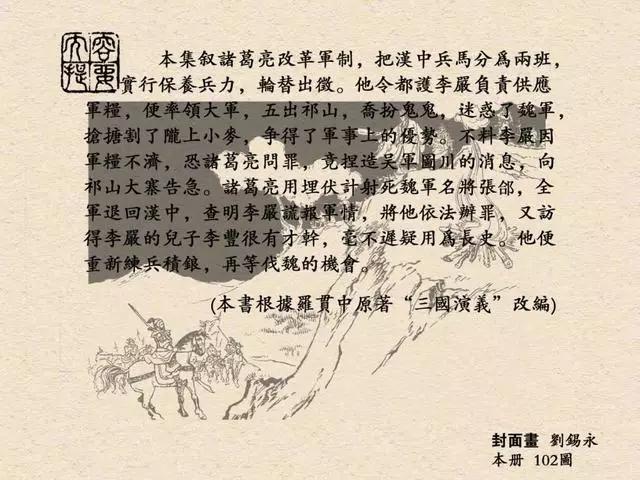 内容提要
本集叙諸葛亮改革軍制，把漢中兵馬分爲兩班，
實行保養兵力，輪替出徵。他令都護李嚴負責供應
軍糧，便率領大軍，五出祁山，喬扮鬼鬼，迷惑了魏軍，
搶搪割了隴上小麥，争得了軍事上的優勢。不料李嚴因
軍糧不濟，恐諸葛亮問罪，竟捏造吴軍圖川的消息，向
祁山大寨告急。諸葛亮用埋伏計射死魏軍名將張郃，全
軍退回漢中，查明李嚴謊報軍情，將他依法辦罪，又訪
得李嚴的兒子李豐很有才幹，毫不遲疑用爲長史。他便
重新練兵積銀，再等伐魏的機會。
(本書根據羅貫中原著“三國演義”改編)
封面畫 劉錫永
本册 102圖